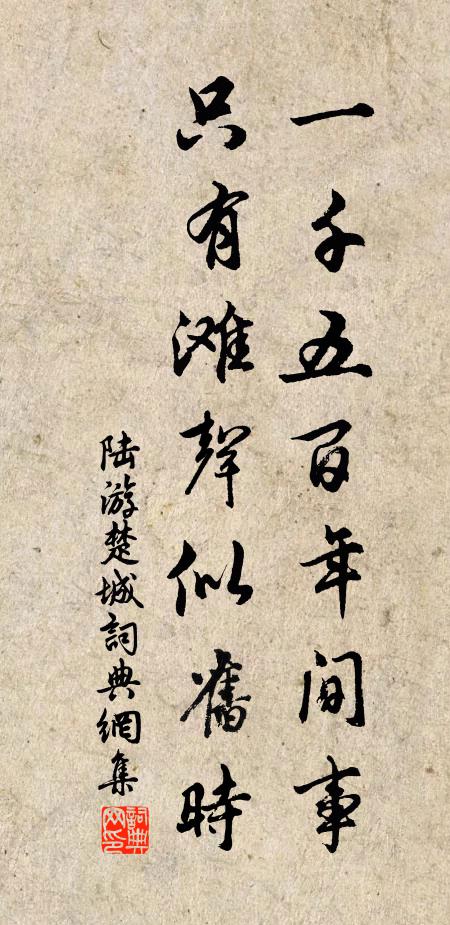 一千五百年间事
只有滩聲似舊時
陆游楚城詞典網集
詞典网印